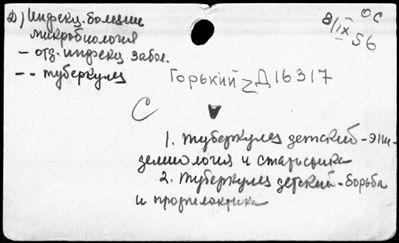 Д) Инфекц. болезни
микробиология
— отд. инфекц забол.
— — туберкулез
ОС
8/IX 56
Горький 2Д16317
С
1. туберкулез детский - эпи-
демиология и статистика
2. туберкулез детский - борьба
и профилактика